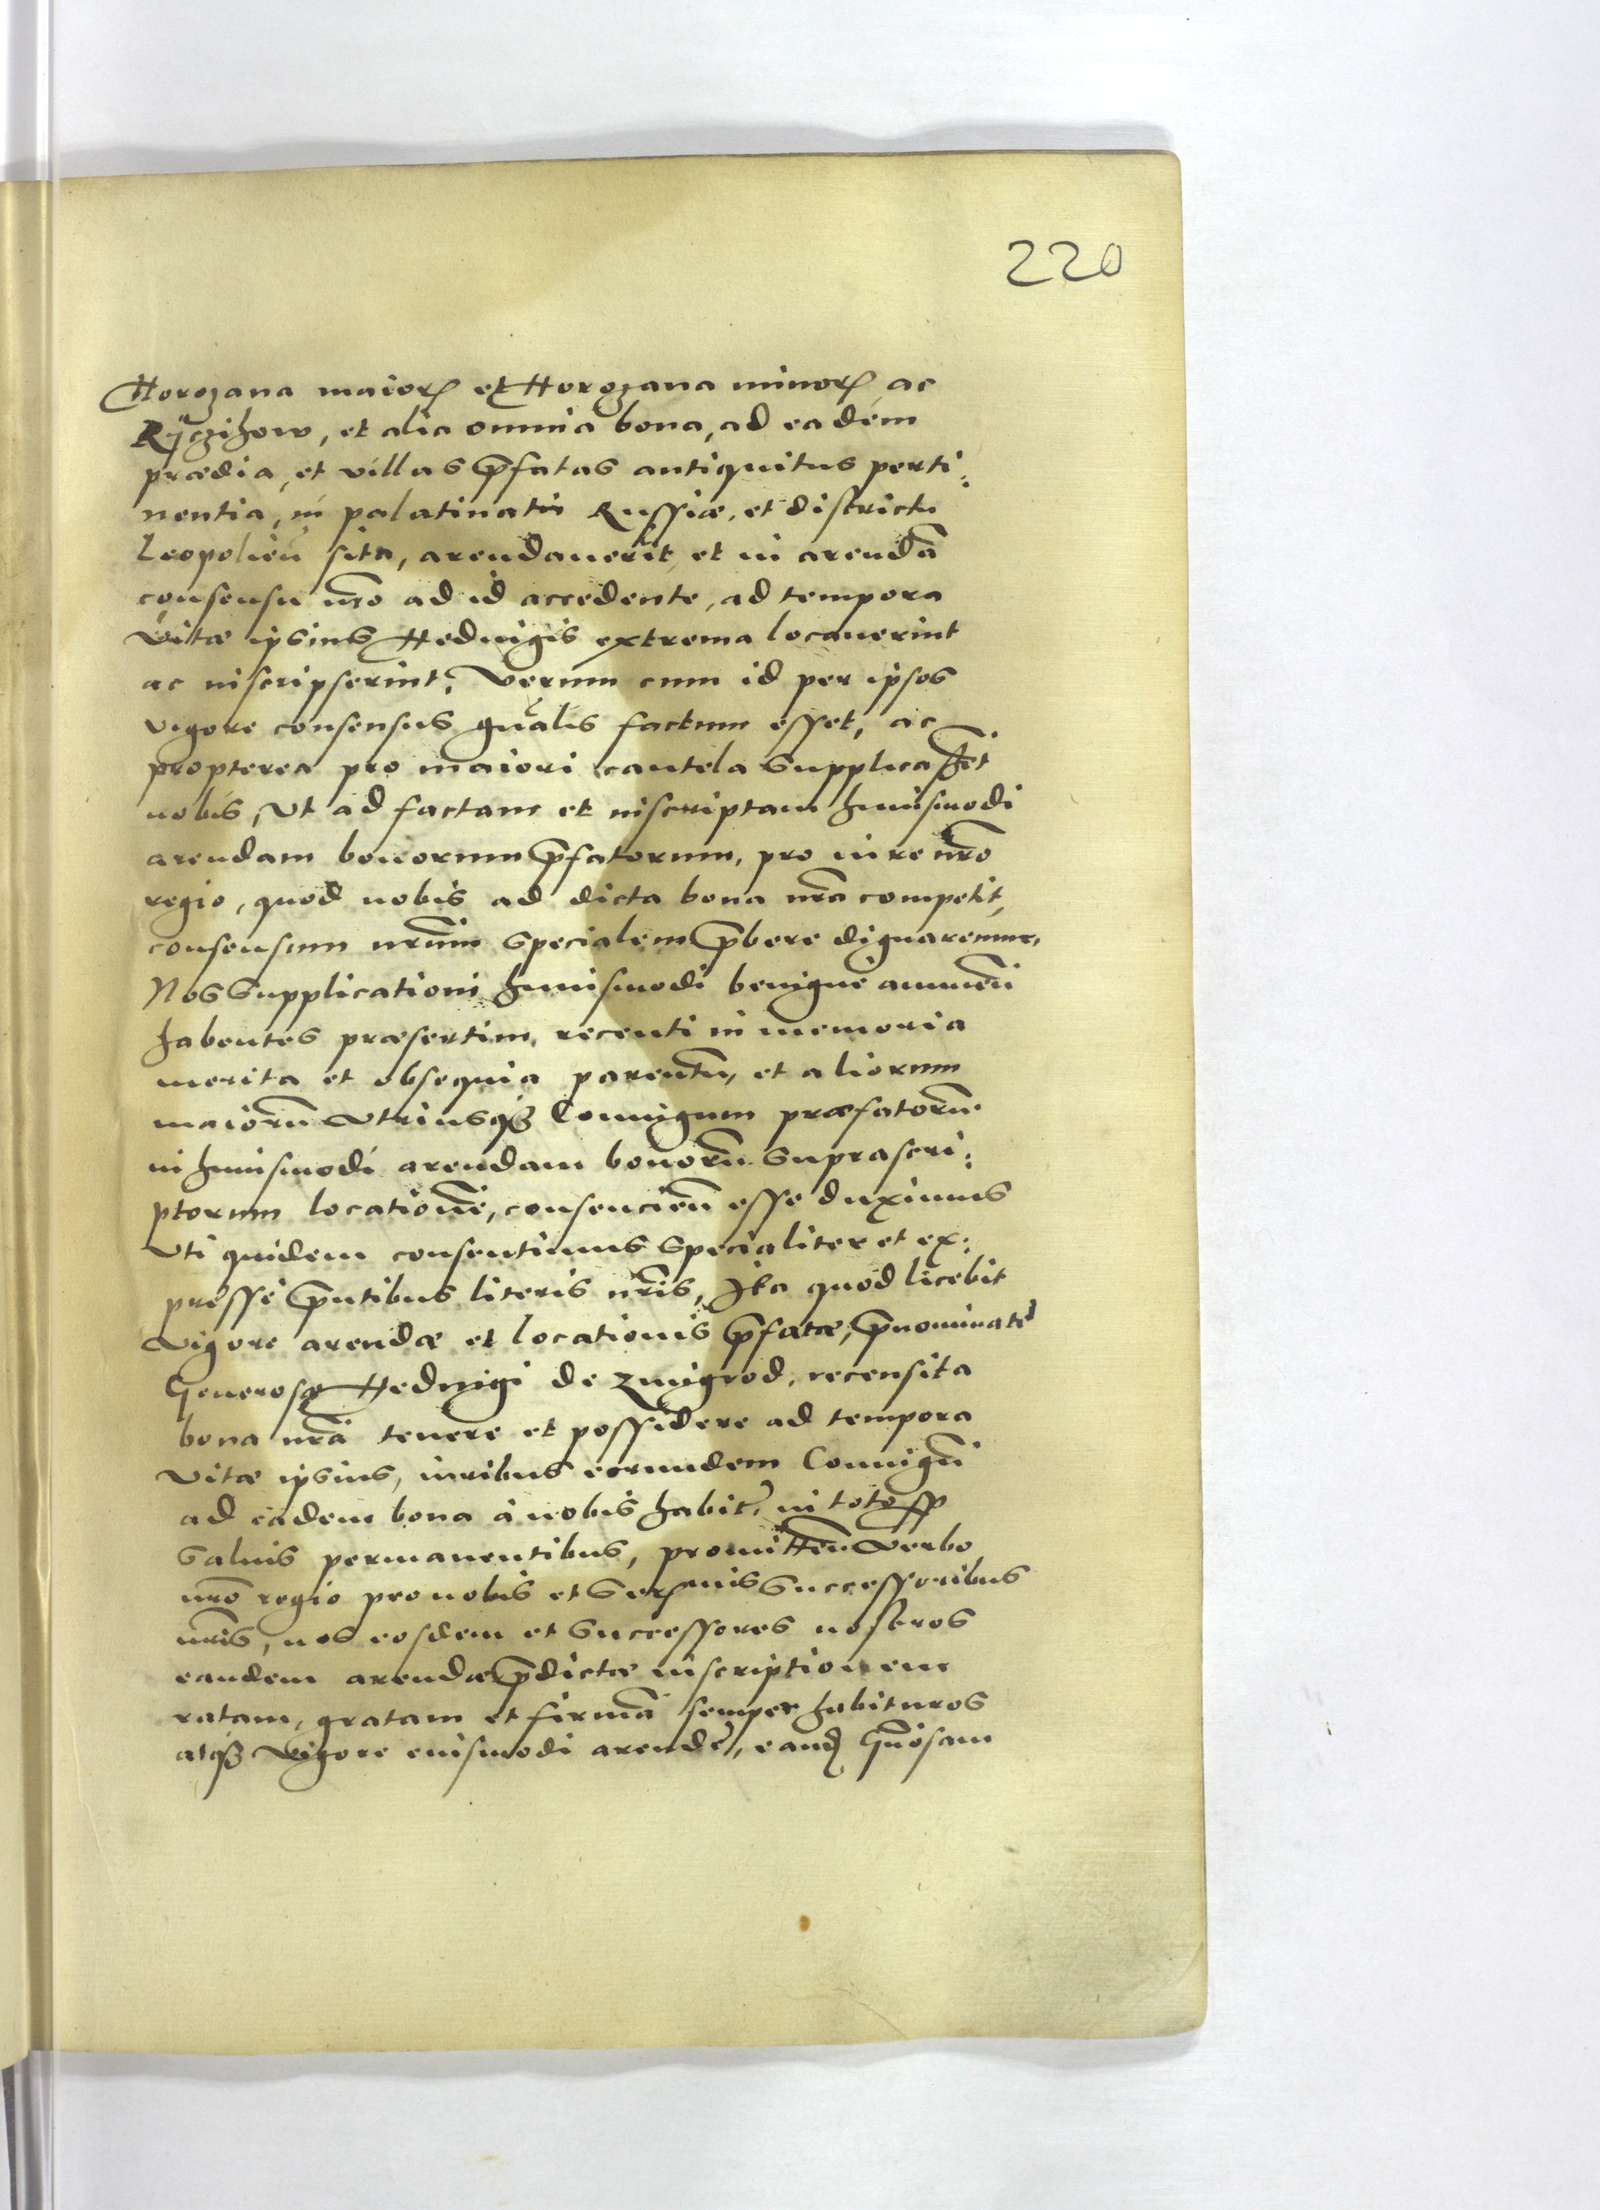 220
Horozana maior et Horozana minor ac
Rÿczihow, et alia omnia bona, ad eadem
prædia, et villas p̄fatas antiquitus perti:
nentia, in palatinatu Russiæ, et districtu
Leopolien̄ sita, arendauerit et in arendā
consensu nr̄o ad id accedente, ad tempora
vitæ ipsius Heduigis extrema locauerint
ac inscripserint, Verum cum id per ipsos
vigore consensus gn̄alis factum esset, ac
propterea pro maiori cautela supplicassēt
nobis, Vt ad factam et inscriptam huiusmodi
arendam bonorum p̄fatorum, pro iure nr̄o
regio, quod nobis ad dicta bona nr̄a competit,
consensum nr̄um specialem p̄bere dignaremur,
Nos supplicationi huiusmodi benigne annuen̄
habentes præsertim, recenti in memoria
merita et obsequia parentū, et aliorum
maiorū vtriusqʒ Coniugum præfatorū
in huiusmodi arendam bonorū suprascri:
ptorum locationē, consencien̄ esse duximus
Vti quidem consentimus specialiter et ex:
presse p̄ntibus literis nr̄is, Ita quod licebit
vigore arendæ et locationis p̄fatæ, p̄nominatę
Generosę Heduigi de Zmigrod, recensita
bona nr̄a tenere et possidere ad tempora
vitæ ipsius, iuribus eorundem Coniugū
ad eadem bona à nobis habit, in toto
saluis permanentibus, promitten̄ verbo
nr̄o regio pro nobis et Ser̄mis Successoribus
nr̄is, nos eosdem et Successores nostros
eandem arendæ p̄dictæ inscriptionem
ratam, gratam et firmā semper habituros
atqʒ vigore eiusmodi arendę, eand Gn̄osam